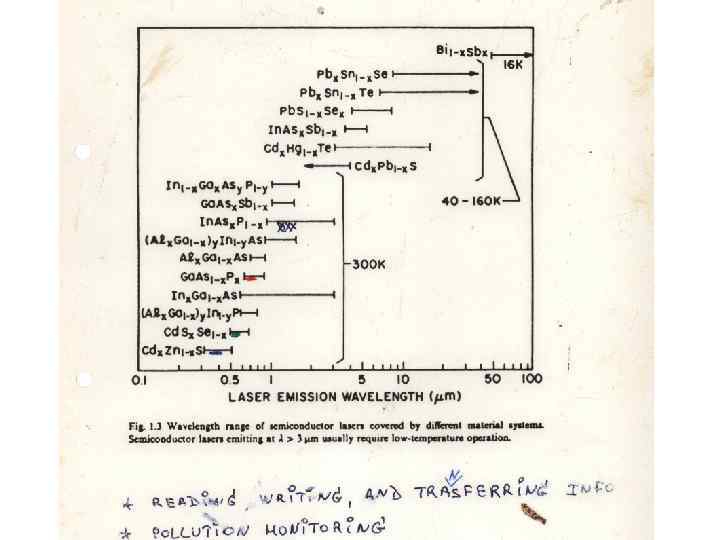 Bi₁₋ₓSbₓ
16K
PbₓSn₁₋ₓSe
PbₓSn₁₋ₓTe
PbS₁₋ₓSeₓ
InAsₓSb₁₋ₓ
CdₓHg₁₋ₓTe
CdₓPb₁₋ₓS
In₁₋ₓGaₓAsᵧP₁₋ᵧ
GaAsₓSb₁₋ₓ
40 – 160K
InAsₓP₁₋ₓ
(AℓₓGa₁₋ₓ)ᵧIn₁₋ᵧAs
AℓₓGa₁₋ₓAs
300K
GaAs₁₋ₓPₓ
InₓGa₁₋ₓAs
(AℓₓGa₁₋ₓ)ᵧIn₁₋ᵧP
CdSₓSe₁₋ₓ
CdₓZn₁₋ₓS
0.1 0.5 1 5 10 50 100
LASER EMISSION WAVELENGTH (μm)
Fig. 1.3 Wavelength range of semiconductor lasers covered by different material systems.
Semiconductor lasers emitting at λ > 3 μm usually require low-temperature operation.
* READING, WRITING, AND TRASFERRING INFO
N
* POLLUTION MONITORING